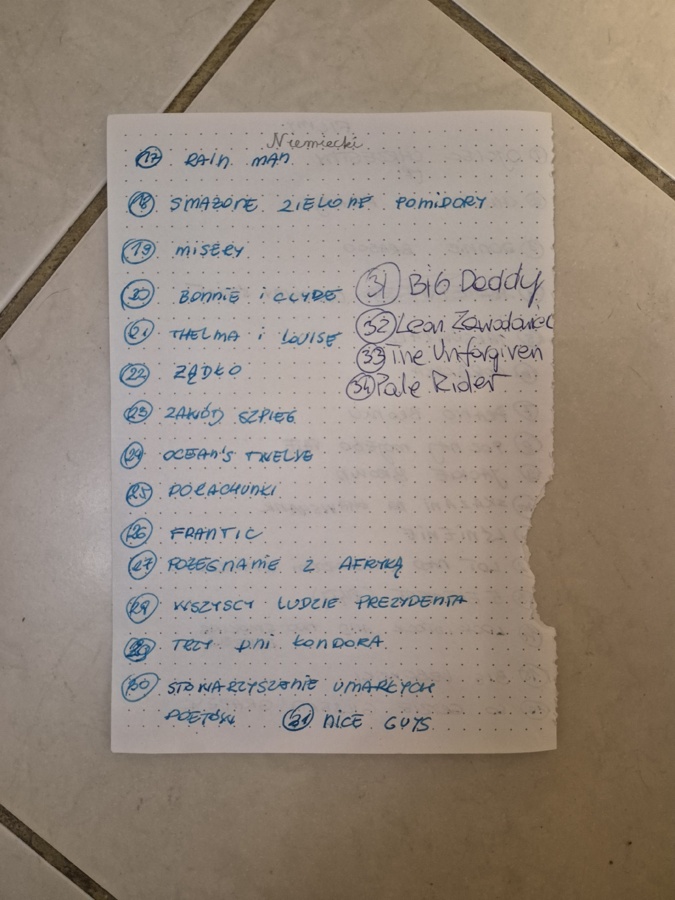 Niemiecki
17 RAIN MAN
18 SMAŻONE ZIELONE POMIDORY
19 MISERY
20 BONNIE i CLYDE
21 THELMA i LOUISE
22 ŻĄDŁO
23 ZAWÓD SZPIEG
24 OCEAN'S TWELVE
25 PORACHUNKI
26 FRANTIC
27 POŻEGNANIE Z AFRYKĄ
28 WSZYSCY LUDZIE PREZYDENTA
29 TRZY DNI KONDORA
30 STOWARZYSZENIE UMARŁYCH
POETÓW 31 NICE GUYS
31 BIG Daddy
32 Leon Zawodowiec
33 The Unforgiven
34 Pale Rider